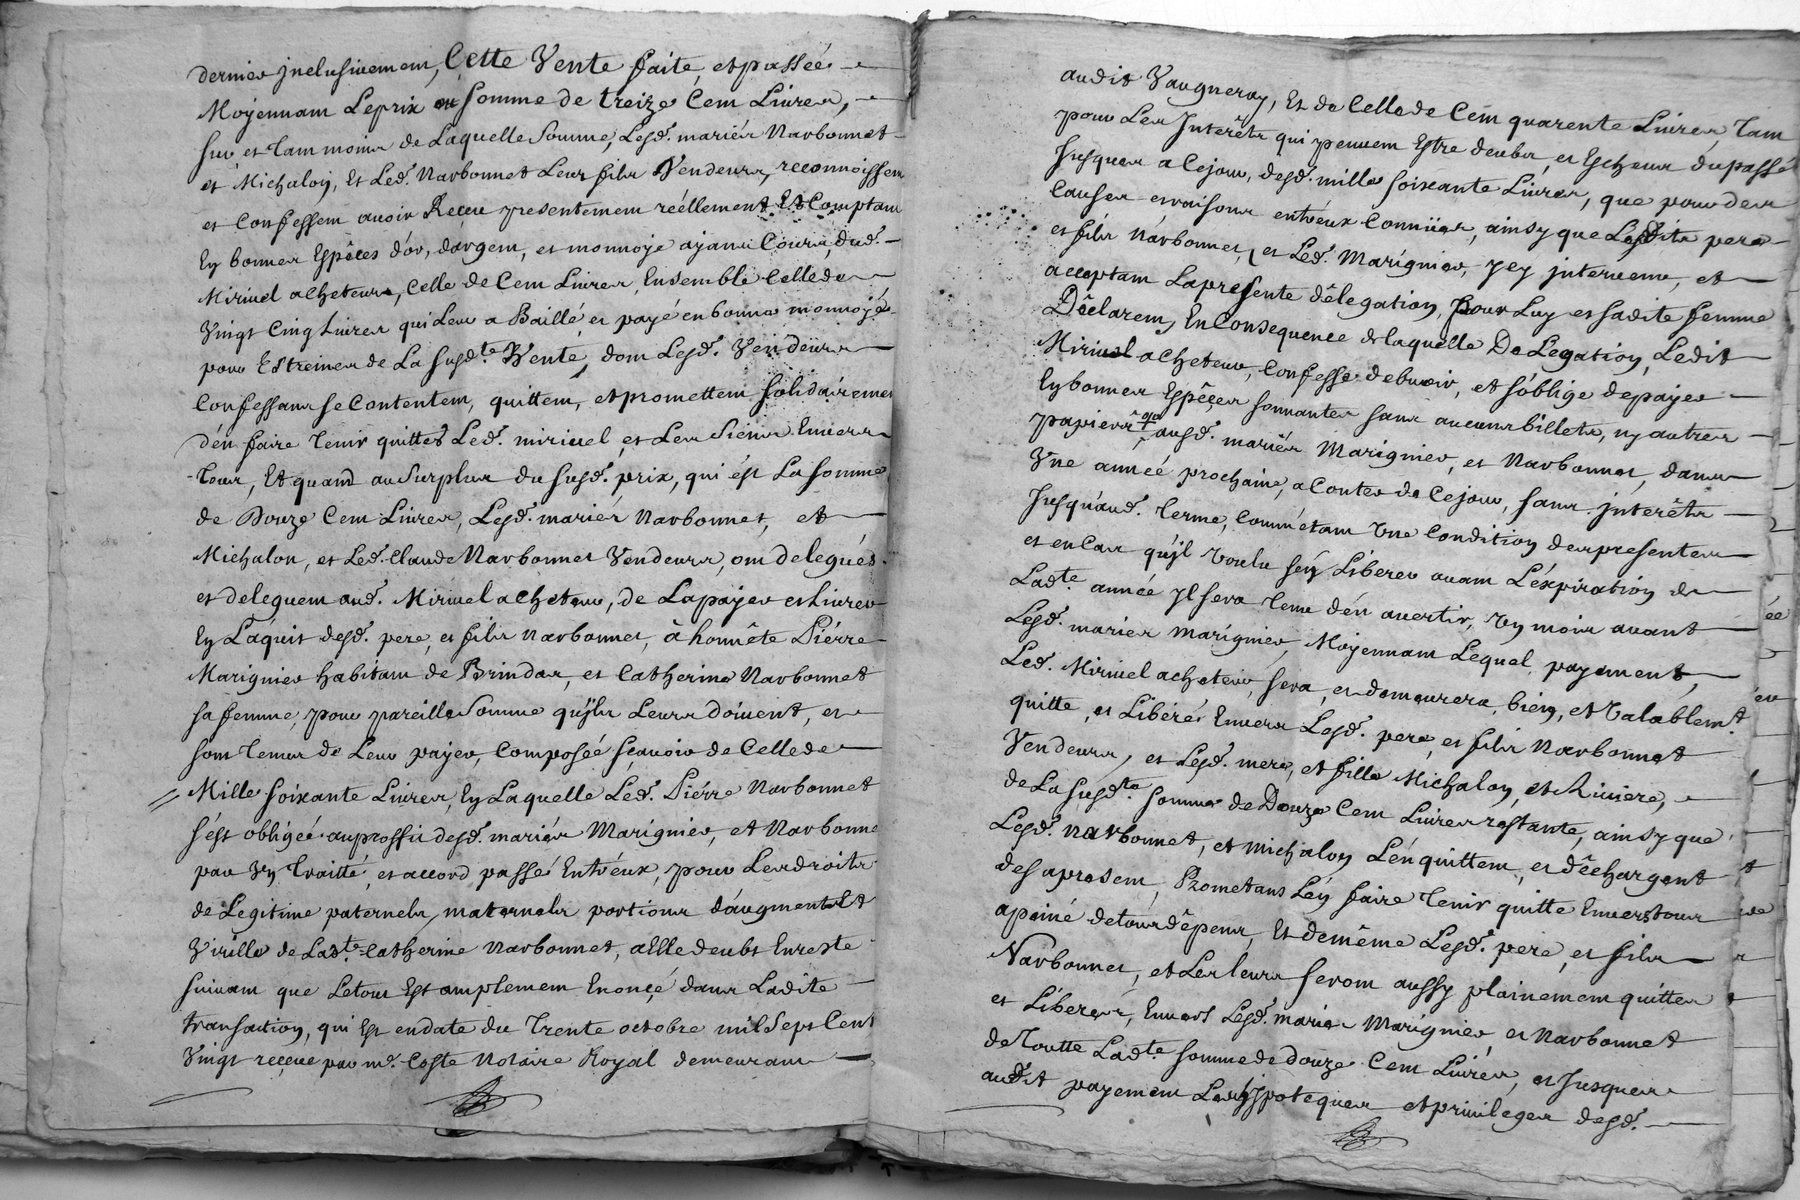 dernier jnclusivement, Cette Vente faite, et passéé
Moÿennam Le prix et somme de treize Cent Livres,
sur, et Tam moins de Laquelle Somme, Lesd. mariés Narbonnet
et Michalon, Et Led. Narbonnet Leur fils Vendeurs, reconnoissent
et Confessem avoir Receu presentemem réellement Et Comptam
En bonnes Espêces d'or, d'argem, et monnoje ajam Cours, dud.
Miriuel acheteur, Celle de Cem Livres, Ensemble Celle de
Vingt Cinq Livres qui Leur a Baillé, et payé en bonne monnoje
pour Estreines de La susd.te Vente, dom Lesd. Vendeurs
Confessans se Contentem, quittem, et promettem solidairemem
d'en faire Tenir quittes Led. miriuel, et Les Siens Enuers
Tous, Et quand au Surplus du susd. prix, qui ést La Somme
de Douze Cem Livres, Lesd. mariés Narbonnet, et
Michalon, et Led. Claude Narbonnet Vendeurs, om delegués
et deleguem aud. Miriuel acheteur, de La payer et Livrer
En L'aquit desd. pere, et fils Narbonnet, à honnête Piérre
Marignier habitam de Brindas, et Catherine Narbonnet
sa femme, pour pareille Somme qu'jls Leurs doiuent, et
som Tenus de Leur payer, Composéé sçauoir de Celle de
Mille soixante Livres, En Laquelle Led. Piérre Narbonnet
s'ést obligée au proffit desd. mariés Marignier, et Narbonne
par Vn Traitté, et accord passé Entréux, pour Les droits
de Legitime paternels, maternels portions d'augment Et
Virille de Lad.te Catherine Narbonnet, a Elle deubt En reste
suivam que Le tour Est amplemem Enonçé dans Ladite
transaction, qui Est en date du Trente octobre mil Sept Cent
Vingt reçeue par m.e Coste Notaire Royal demeuram
audit Vaugneray, Et de Celle de Cem quarente Livres Tam
pour Les Interêts qui peuuem Estre deubs, et Escheus du passé
Jusques a Ce jour, desd. mille soixante Livres, que pour des
Causes et raisons entréux Connües, ainsy que Lesdits pere
et fils Narbonnet, et Led. Marignier, jcy jnteruenu, et
acceptam La presente délegation, pour Luy et sadite femme
Déclarem, En Consequence de laquelle Delegation, Ledit
Miriuel acheteur, Confesse debuoir, et s'oblige de payer
En bonnes Espêçes sonnantes sans aucuns billets, ny autres
papiers, ausd. mariés Marignier, et Narbonnet, dans
Vne annéé prochaine, a Conter de Ce jour, sans jnterêts
Jusqu'aud. Terme, Comm'étam Vne Condition des presentes
et en Cas qu'jl Voulu s'en Liberer auam L'éxpiration de
Lad.te annéé jl sera Tenu d'en auertir, Vn mois auant
Lesd. mariés Marignier, Moyennam Lequel payement,
Led. Miriuel acheteur, sera, et demeurera, bien, et Valablem.t
quitte, et Libérés Enuers Lesd. pere, et fils Narbonnet
Vendeurs, et Lesd. mere, et fille Michalon, et Riuiere,
de La susd.te somme de Douze Cem Livres restante, ainsy que
Lesd. Narbonnet, et Michalon L'en quittem, et déchargent
des a presem, Prometans L'en faire Tenir quitte Enuers tous
a peine de tous dépens, Et de même Lesd. pere, et fils
Narbonnet, et Les leurs serom aussy plainemem quittes
et Liberés, Enuers Lesd. mariés Marignier, et Narbonnet
de Toutte Lad.te somme de douze Cem Livres, et Jusques
audit payemem Les hypoteques et priuileges desd.